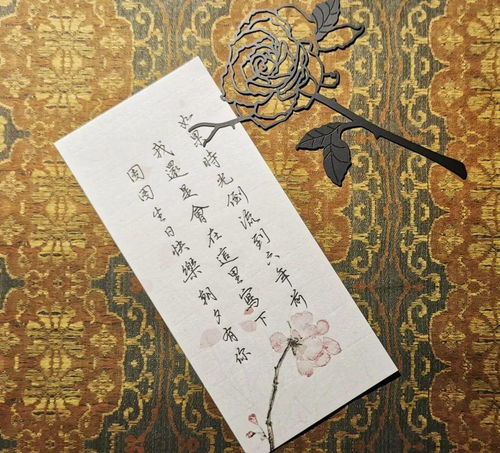 如果時光倒流到六年前
我還是會在這里寫下
團團生日快樂朝夕有你